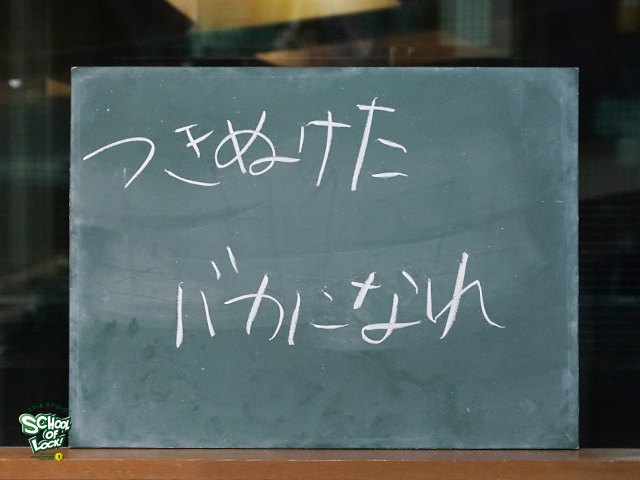 つきぬけた
バカになれ
SCHOOL
OF
LOCK!